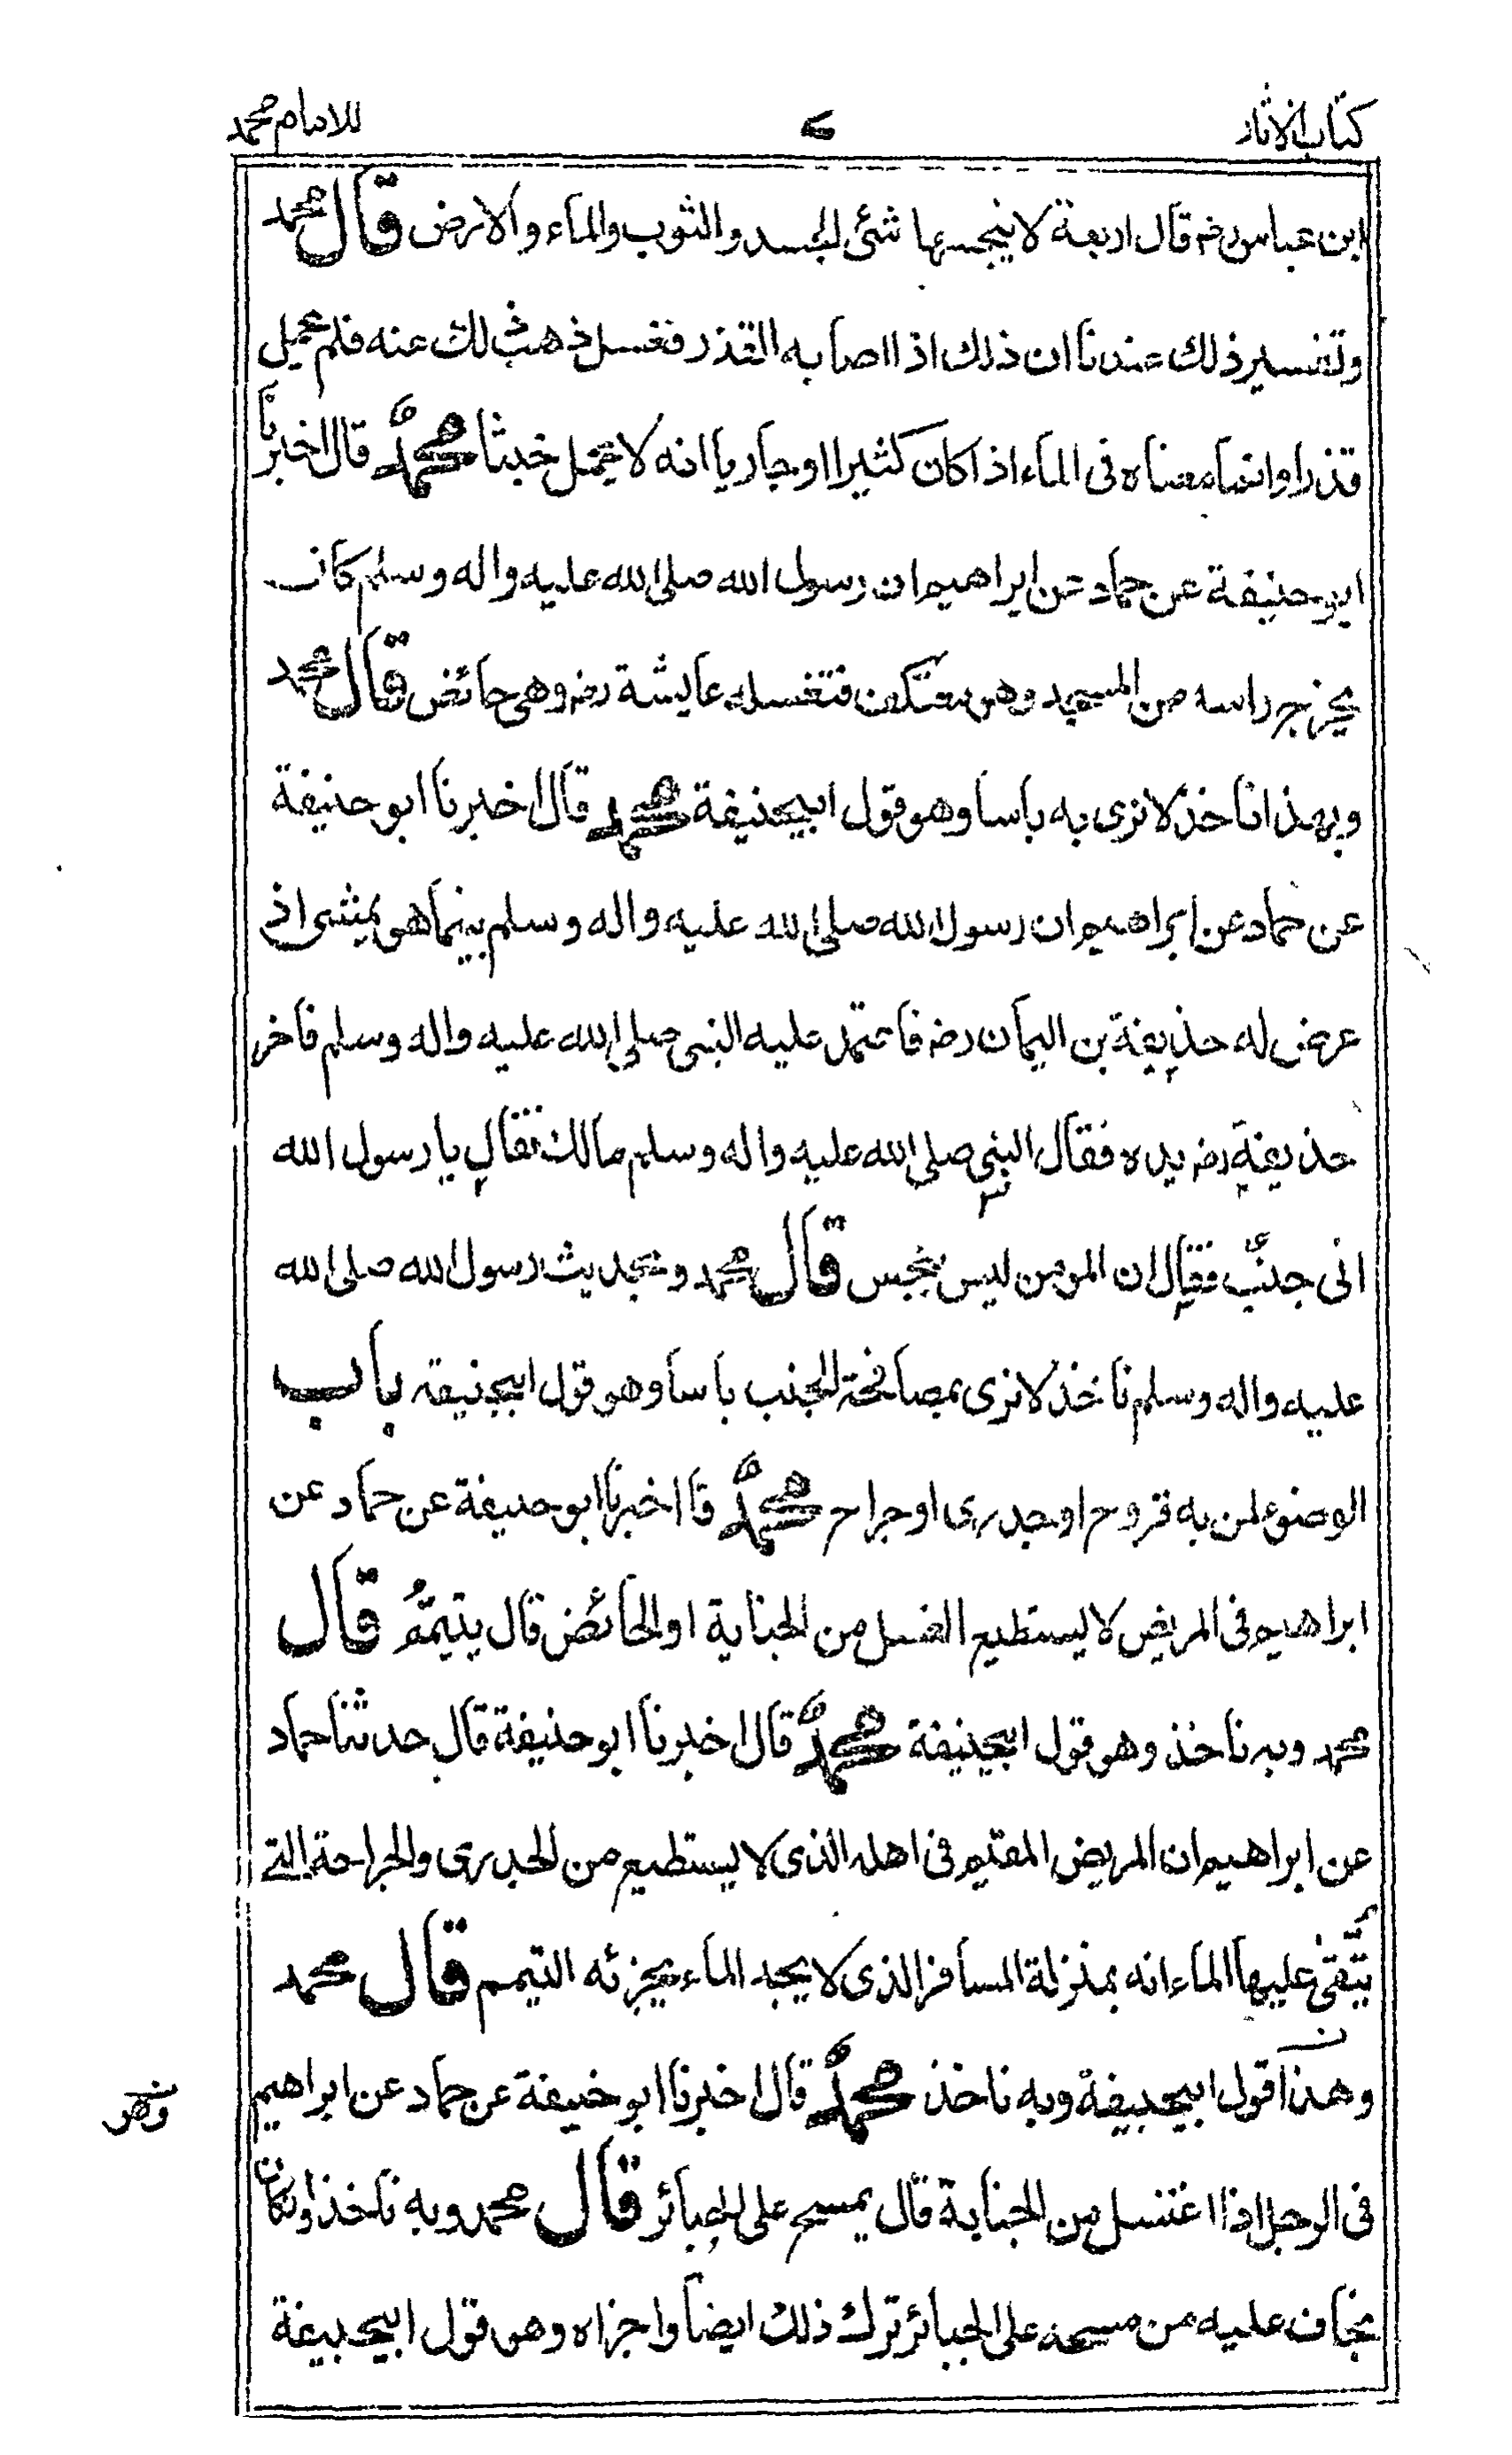 كتاب الاثار ٧ للامام محمد
ابن عباس رضـ قال اربعة لا ينجسها شئ الجسد والثوب والماء والارض قال محمد
وتفسير ذلك عندنا ان ذلك اذا اصابه القذر فغسل ذهب ذلك عنه فلم يحمل
قذرا وانما معناه فى الماء اذا كان كثيرا او جاريا انه لا يحمل خبثا محمدٌ قال اخبرنا
ابو حنيفة عن حماد عن ابراهيم ان رسول الله صلى الله عليه واله وسلم كان
يخرج راسه من المسجد وهو معتكف فتغسله عايشة رضـ وهى حائض قال محمد
وبهذا ناخذ لا نرى به باسا وهو قول ابيحنيفة محمد قال اخبرنا ابو حنيفة
عن حماد عن ابراهيم ان رسول الله صلى الله عليه واله وسلم بينما هو يمشى اذ
عرض له حذيفة بن اليمان رضـ فاعتمد عليه النبى صلى الله عليه واله وسلم فاخر
حذيفة رضـ يده فقال النبى صلى الله عليه واله وسلم مالك فقال يا رسول الله
انى جنبٌ فقال ان المومن ليس بنجس قال محمد وبحديث رسول الله صلى الله
عليه واله وسلم ناخذ لا نرى بمصافحة الجنب باسا وهو قول ابيحنيفة باب
الوضوء لمن به قروح او جدرى او جراح محمدٌ قال اخبرنا ابو حنيفة عن حماد عن
ابراهيم فى المريض لا يستطيع الغسل من الجنابة او الحائض قال يتيممُ قال
محمد وبه ناخذ وهو قول ابيحنيفة محمدٌ قال اخبرنا ابو حنيفة قال حدثنا حماد
عن ابراهيم ان المريض المقيم فى اهله الذى لا يستطيع من الجدرى والجراحة التى
يتقى عليها الماء انه بمنزلة المسافر الذى لا يجد الماء يجزئه التيمم قال محمد
وهذا قول ابيحنيفة وبه ناخذ محمدٌ قال اخبرنا ابو حنيفة عن حماد عن ابراهيم
فى الرجل اذا اغتسل من الجنابة قال يمسح على الجبائر قال محمد وبه ناخذ وان كان
يخاف عليه من مسحه على الجبائر ترك ذلك ايضا واجزاه وهو قول ابيحنيفة